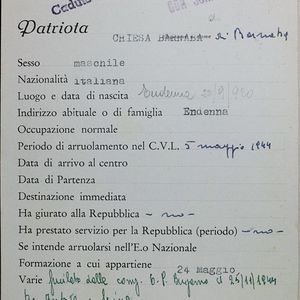 Caduto
Patriota
CHIESA BARNABA di Barnaba
Sesso maschile
Nazionalità italiana
Luogo e data di nascita Endenna 20/9/920
Indirizzo abituale o di famiglia Endenna
Occupazione normale
Periodo di arruolamento nel C.V.L. 5 maggio 1944
Data di arrivo al centro
Data di Partenza
Destinazione immediata
Ha giurato alla Repubblica - no -
Ha prestato servizio per la Repubblica (periodo) - no -
Se intende arruolarsi nell'E.o Nazionale
Formazione a cui appartiene 24 maggio
Varie fucilato dalle comp. O.P. Bergamo il 25/11/1944